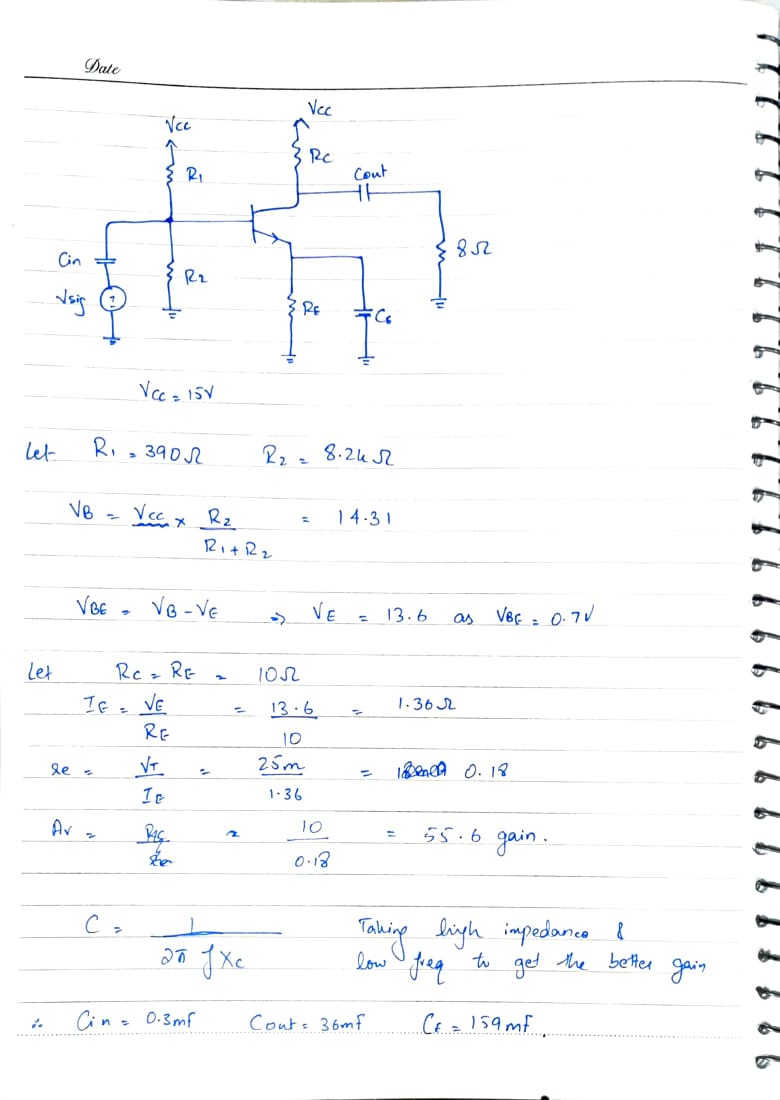 Date
Vcc
Vcc
R1
Rc
Cout
Cin
R2
8Ω
Vsig
RE
CE
Vcc = 15V
Let R1 = 390Ω R2 = 8.2kΩ
VB = Vcc × R2 / R1 + R2 = 14.31
VBE = VB - VE => VE = 13.6 as VBE = 0.7V
Let Rc = RE = 10Ω
IE = VE / RE = 13.6 / 10 = 1.36Ω
re = VT / IE = 25m / 1.36 = 0.18
Av = = 10 / 0.18 = 55.6 gain.
C = 1 / 2π f Xc Taking high impedance &
low freq to get the better gain
∴ Cin = 0.3mf Cout = 36mf CE = 159mf.